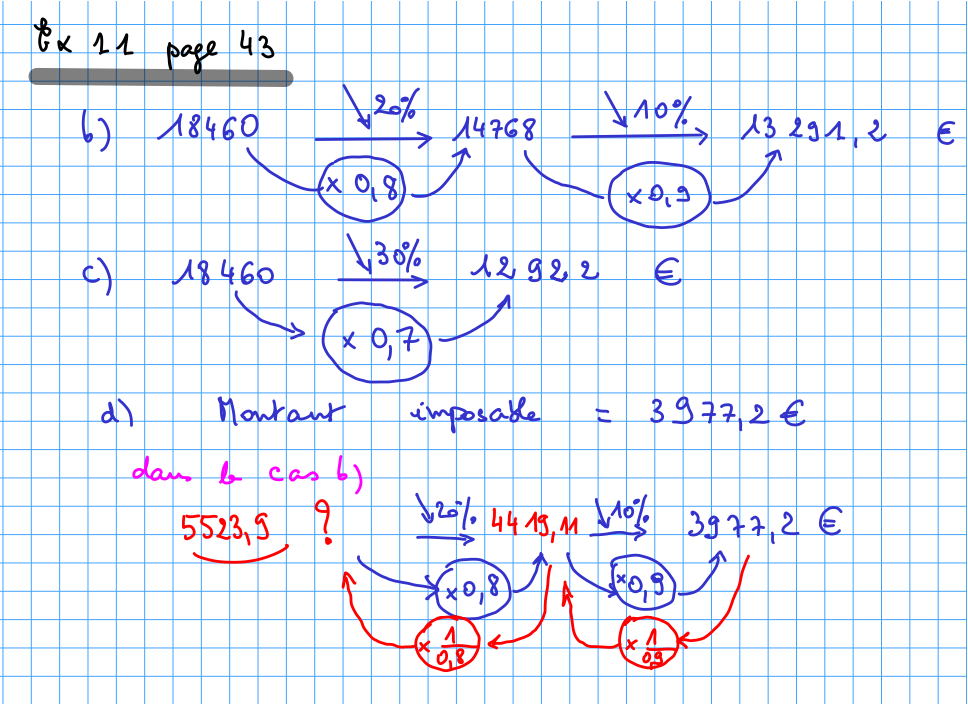 Ex 11 page 43
b) 18460 ↘20% → 14768 ↘10% → 13 291,2 €
× 0,8 ×0,9
c) 18460 ↘30% → 12922 €
× 0,7
d) Montant imposable = 3977,2 €
dans le cas b)
5523,9 ? ↘20% → 4419,11 ↘10% → 3977,2 €
×0,8 ×0,9
× 1/0,8 × 1/0,9